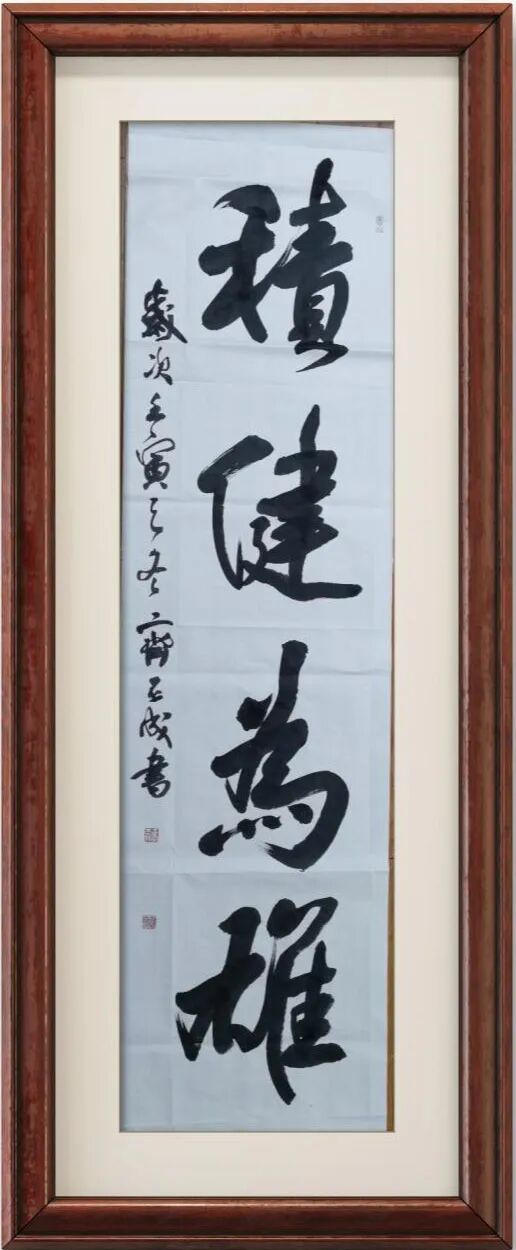 積健為雄
歲次壬寅之冬齊玉成書